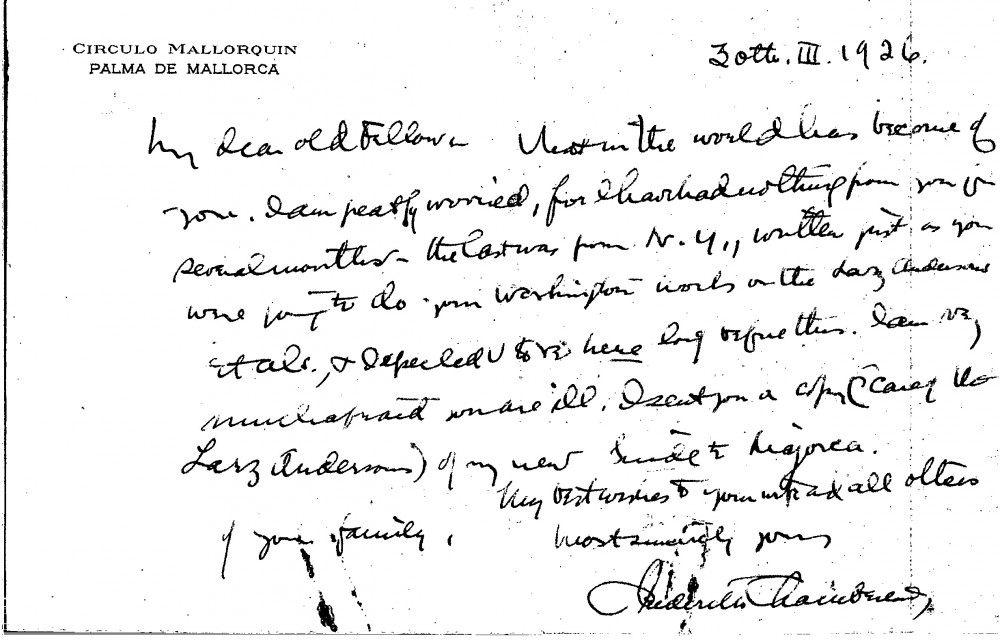 CIRCULO MALLORQUIN
PALMA DE MALLORCA
30th. III. 1926.
My dear old Fellow – What in the world has become of
you. I am greatly worried, for I have had nothing from you for
several months – the last was from N.Y., written just as you
were going to do your Washington work on the Larz Andersons
et als., & I expected U to be here long before this. I am very
much afraid you are ill. I sent you a copy (Care of the
Larz Andersons) of my new Guide to Majorca.
My best wishes to your wife and all others
of your family,
Most sincerely yours
Frederick Chamberlin